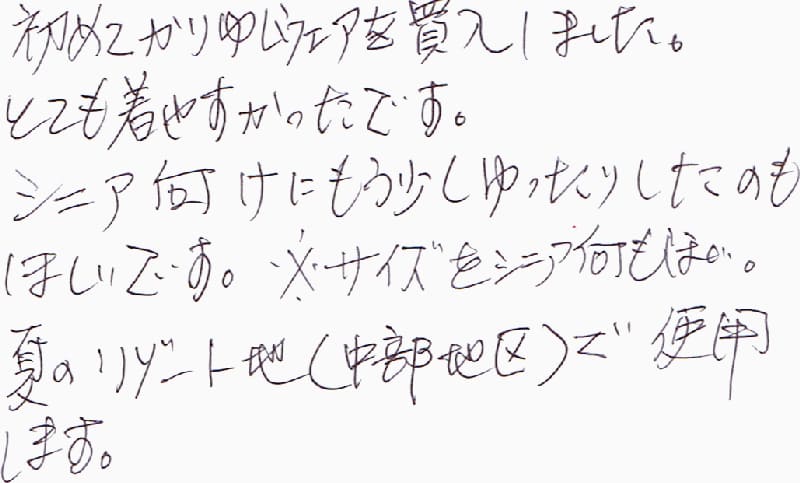 初めてかりゆしウェアを買入しました。
とても着やすかったです。
シニア向けにもう少しゆったりしたのも
ほしいです。※サイズをシニア向もほしい。
夏のリゾート地(中部地区)で使用
します。